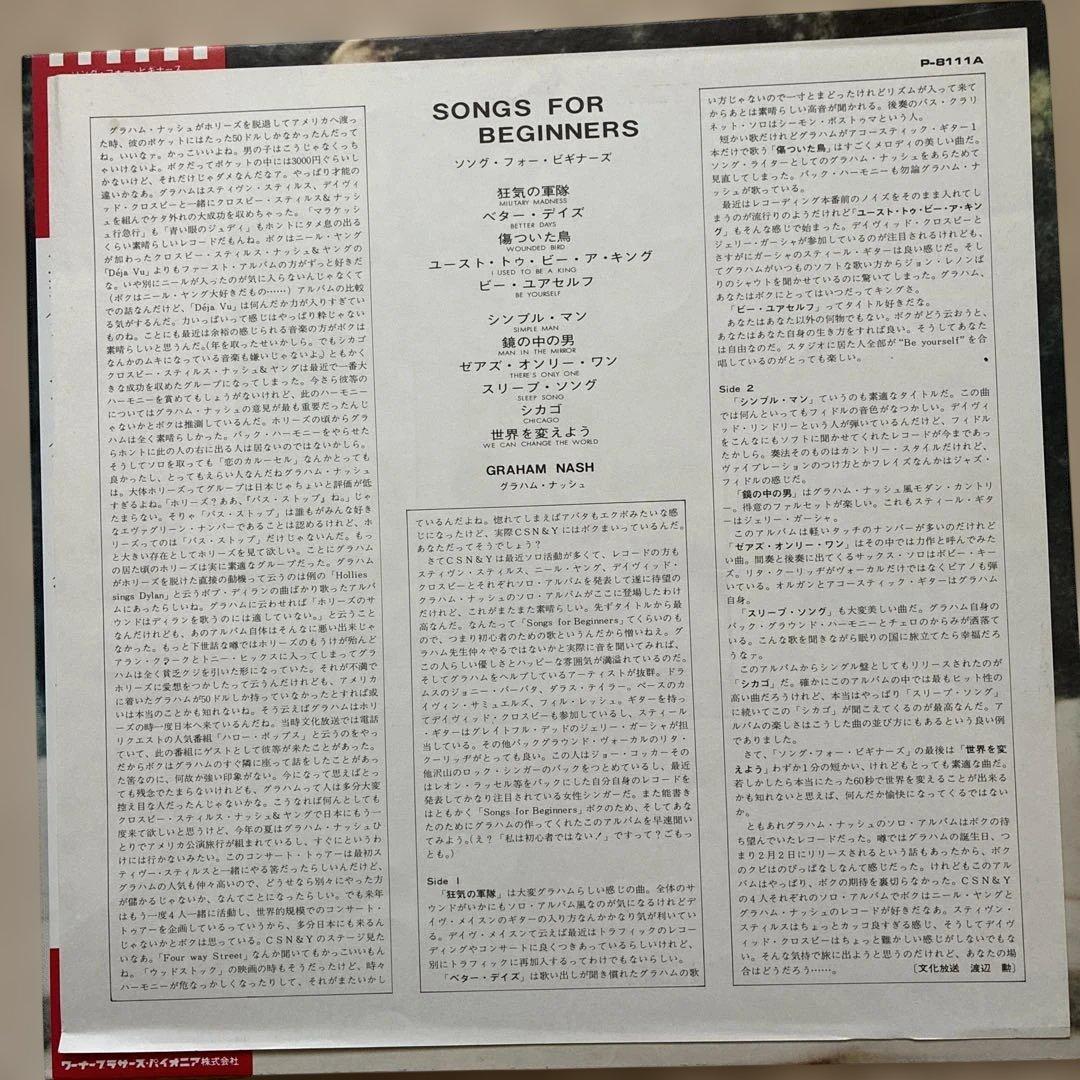 ソング・フォー・ビギナーズ
P-8111A
SONGS FOR
BEGINNERS
ソング・フォー・ビギナーズ
狂気の軍隊
MILITARY MADNESS
ベター・デイズ
BETTER DAYS
傷ついた鳥
WOUNDED BIRD
ユースト・トゥ・ビー・ア・キング
I USED TO BE A KING
ビー・ユアセルフ
BE YOURSELF
シンプル・マン
SIMPLE MAN
鏡の中の男
MAN IN THE MIRROR
ゼアズ・オンリー・ワン
THERE'S ONLY ONE
スリープ・ソング
SLEEP SONG
シカゴ
CHICAGO
世界を変えよう
WE CAN CHANGE THE WORLD
GRAHAM NASH
グラハム・ナッシュ
グラハム・ナッシュがホリーズを脱退してアメリカへ渡っ
た時、彼のポケットにはたった50ドルしかなかったんだって
ね。いいなァ。かっこいいよね。男の子はこうじゃなくっち
ゃいけないよ。ボクだってポケットの中には3000円ぐらいし
かないけど、それだけじゃダメなんだなァ。やっぱり才能の
違いかなあ。グラハムはスティヴン・スティルス、デイヴィ
ッド・クロスビーと一緒にクロスビー・スティルス&ナッシ
ュを組んでケタ外れの大成功を収めちゃった。「マラケッシ
ュ行急行」も「青い眼のジュディ」もホントにタメ息の出る
くらい素晴らしいレコードだもんね。ボクはニール・ヤング
が加わったクロスビー・スティルス・ナッシュ&ヤングの
「Déja Vu」よりもファースト・アルバムの方がずっと好きだ
な。いや別にニールが入ったのが気に入らないんじゃなくて
(ボクはニール・ヤング大好きだもの……)アルバムの比較
での話なんだけど、「Déja Vu」は何んだか力が入りすぎてい
る気がするんだ。力いっぱいって感じはやっぱり粋じゃない
ものね。ことにも最近は余裕の感じられる音楽の方がボクは
素晴らしいと思うんだ。(年を取ったせいかしら。でもシカゴ
なんかのムキになっている音楽も嫌いじゃないよ)ともかく
クロスビー・スティルス・ナッシュ&ヤングは最近で一番大
きな成功を収めたグループになってしまった。今さら彼等の
ハーモニーを賞めてもしょうがないけれど、此のハーモニー
についてはグラハム・ナッシュの意見が最も重要だったんじ
ゃないかとボクは推測しているんだ。ホリーズの頃からグラ
ハムは全く素晴らしかった。バック・ハーモニーをやらせた
らホントに此の人の右に出る人は居ないのではないかしら。
そうしてソロを取っても「恋のカルーセル」なんかとっても
良かったし、とってもえらい人なんだねグラハム・ナッシュ
は。大体ホリーズってグループは日本じゃちょいと評価が低
すぎるよね。「ホリーズ?ああ、『バス・ストップ』ね。」じゃ
たまらない。そりゃ「バス・ストップ」は誰もがみんな好き
なエヴァグリーン・ナンバーであることは認めるけれど、ホ
リーズってのは「バス・ストップ」だけじゃないんだ。もっ
と大きい存在としてホリーズを見て欲しい。ことにグラハム
の居た頃のホリーズは実に素適なグループだった。グラハム
がホリーズを脱けた直接の動機って云うのは例の「Hollies
sings Dylan」と云うボブ・ディランの曲ばかり歌ったアルバ
ムにあったらしいね。グラハムに云わせれば「ホリーズのサ
ウンドはディランを歌うのには適していない。」と云うこと
なんだけれども、あのアルバム自体はそんなに悪い出来じゃ
なかった。もっと下世話な噂ではホリーズのもうけが殆んど
アラン・クラークとトニー・ヒックスに入ってしまってグラ
ハムは全く貧乏クジを引いた形になっていた。それが不満で
ホリーズに愛想をつかしたって云うんだけれども、アメリカ
に着いたグラハムが50ドルしか持っていなかったとすれば或
いは本当のことかも知れないね。そう云えばグラハムはホリ
ーズの時一度日本へ来ているんだね。当時文化放送では電話
リクエストの人気番組「ハロー・ポップス」と云うのをやっ
ていて、此の番組にゲストとして彼等が来たことがあった。
だからボクはグラハムのすぐ隣に座って話をしたことがあっ
た筈なのに、何故か強い印象がない。今になって思えばとっ
ても残念でたまらないけれども、グラハムって人は多分大変
控え目な人だったんじゃないかな。こうなれば何んとしても
クロスビー・スティルス・ナッシュ&ヤングで日本にもう一
度来て欲しいと思うけど、今年の夏はグラハム・ナッシュひ
とりでアメリカ公演旅行が組まれているし、すぐにというわ
けには行かないみたい。このコンサート・トゥアーは最初ス
ティヴー・スティルスと一緒にやる筈だったらしいんだけど、
グラハムの人気も仲々高いので、どうせなら別々にやった方
が儲かるじゃないか、なんてことになったらしい。でも来年
はもう一度4人一緒に活動し、世界的規模でのコンサート・
トゥアーを企画しているっていうから、多分日本にも来るん
じゃないかとボクは思っている。CSN&Yのステージ見た
いなあ。「Four way Street」なんか聞いてもかっこいいもん
ね。「ウッドストック」の映画の時もそうだったけど、時々
ハーモニーが危なっかしくなったりして、それがまたいかし
ているんだよね。惚れてしまえばアバタもエクボみたいな感
じになったけど、実際CSN&Yにはボクまいっているんだ。
あなただってそうでしょう?
さてCSN&Yは最近ソロ活動が多くて、レコードの方も
スティヴン・スティルス、ニール・ヤング、デイヴィッド・
クロスビーとそれぞれソロ・アルバムを発表して遂に待望の
グラハム・ナッシュのソロ・アルバムがここに登場したわけ
だけれど、これがまたまた素晴らしい。先ずタイトルから最
高なんだ。なんたって「Songs for Beginners」てくらいのも
ので、つまり初心者のための歌というんだから憎いねぇ。グ
ラハム先生仲々やるではないかと実際に音を聞いてみれば、
この人らしい優しさとハッピーな雰囲気が満溢れているのだ。
そしてグラハムをヘルプしているアーティストが抜群。ドラ
ムスのジョニー・バーバタ、ダラス・テイラー。ベースのカ
イヴィン・サミュエルズ、フィル・レッシュ。ギターを持っ
てデイヴィッド・クロスビーも参加しているし、スティール
・ギターはグレイトフル・デッドのジェリー・ガーシャが担
当している。その他バックグラウンド・ヴォーカルのリタ・
クーリッヂがとっても良い。この人はジョー・コッカーその
他沢山のロック・シンガーのバックをつとめているし、最近
はレオン・ラッセル等をバックにした自分自身のレコードを
発表してかなり注目されている女性シンガーだ。また能書き
はともかく「Songs for Beginners」ボクのため、そしてあな
たのためにグラハムの作ってくれたこのアルバムを早速聞い
てみよう。(え?「私は初心者ではない!」ですって?ごもっ
とも。)
Side 1
「狂気の軍隊」は大変グラハムらしい感じの曲。全体のサ
ウンドがいかにもソロ・アルバム風なのが気になるけれどデ
イヴ・メイスンのギターの入り方なんかかなり気が利いてい
る。デイヴ・メイスンて云えば最近はトラフィックのレコー
ディングやコンサートに良くつきあっているらしいけれど、
別にトラフィックに再加入するってわけでもないらしい。
「ベター・デイズ」は歌い出しが聞き慣れたグラハムの歌
い方じゃないので一寸とまどったけれどリズムが入って来て
からあとは素晴らしい高音が聞かれる。後奏のバス・クラリ
ネット・ソロはシーモン・ポストゥマという人。
短かい歌だけれどグラハムがアコースティック・ギター1
本だけで歌う「傷ついた鳥」はすごくメロディの美しい曲だ。
ソング・ライターとしてのグラハム・ナッシュをあらためて
見直してしまった。バック・ハーモニーも勿論グラハム・ナ
ッシュが歌っている。
最近はレコーディング本番前のノイズをそのまま入れてし
まうのが流行りのようだけれど「ユースト・トゥ・ビー・ア・キン
グ」もそんな感じで始まった。デイヴィッド・クロスビーと
ジェリー・ガーシャが参加しているのが注目されるけれども、
さすがにガーシャのスティール・ギターは良い感じだ。そし
てグラハムがいつものソフトな歌い方からジョン・レノンば
りのシャウトを聞かせているのに驚いてしまった。グラハム、
あなたはボクにとってはいつだってキングさ。
「ビー・ユアセルフ」ってタイトル好きだな。
あなたはあなた以外の何物でもない。ボクがどう云おうと、
あなたはあなた自身の生き方をすれば良い。そうしてあなた
は自由なのだ。スタジオに居た人全部が“Be yourself”を合
唱しているのがとっても楽しい。
Side 2
「シンプル・マン」ていうのも素適なタイトルだ。この曲
では何んといってもフィドルの音色がなつかしい。デイヴィ
ッド・リンドリーという人が弾いているんだけど、フィドル
をこんなにもソフトに聞かせてくれたレコードが今まであっ
たかしら。奏法そのものはカントリー・スタイルだけれど、
ヴァイブレーションのつけ方とかフレイズなんかはジャズ・
フィドルの感じだ。
「鏡の中の男」はグラハム・ナッシュ風モダン・カントリ
ー。得意のファルセットが楽しい。これもスティール・ギタ
ーはジェリー・ガーシャ。
このアルバムは軽いタッチのナンバーが多いのだけれど
「ゼアズ・オンリー・ワン」はその中では力作と呼んでみたい
曲。間奏と後奏に出てくるサックス・ソロはボビー・キー
ズ。リタ・クーリッヂがヴォーカルだけではなくピアノも弾
いている。オルガンとアコースティック・ギターはグラハム
自身。
「スリープ・ソング」も大変美しい曲だ。グラハム自身の
バック・グラウンド・ハーモニーとチェロのからみが洒落て
いる。こんな歌を聞きながら眠りの国に旅立てたら幸福だろ
うなァ。
このアルバムからシングル盤としてもリリースされたのが
「シカゴ」だ。確かにこのアルバムの中では最もヒット性の
高い曲だろうけれど、本当はやっぱり「スリープ・ソング」
に続いてこの「シカゴ」が聞こえてくるのが最高なんだ。ア
ルバムの楽しさはこうした曲の並び方にもあるという良い例
でありました。
さて、「ソング・フォー・ビギナーズ」の最後は「世界を変
えよう」わずか1分の短かい、けれどとっても素適な曲だ。
若しかしたら本当にたった60秒で世界を変えることが出来る
かも知れないと思えば、何んだか愉快になってくるではない
か。
ともあれグラハム・ナッシュのソロ・アルバムはボクの待
ち望んでいたレコードだった。噂ではグラハムの誕生日、つ
まり2月2日にリリースされるという話もあったから、ボク
のクビはのびっぱなしなんて感じだった。けれどもこのアル
バムはやっぱり、ボクの期待を裏切らなかった。CSN&Y
の4人それぞれのソロ・アルバムでボクはニール・ヤングと
グラハム・ナッシュのレコードが好きだなあ。スティヴン・
スティルスはちょっとカッコ良すぎる感じ、そうしてデイヴ
ィッド・クロスビーはちょっと難かしい感じがしないでもな
い。そんな気持で旅に出ようと思うのだけれど、あなたの場
合はどうだろう……。
〔文化放送 渡辺 勲〕
ワーナーブラザーズ・パイオニア株式会社